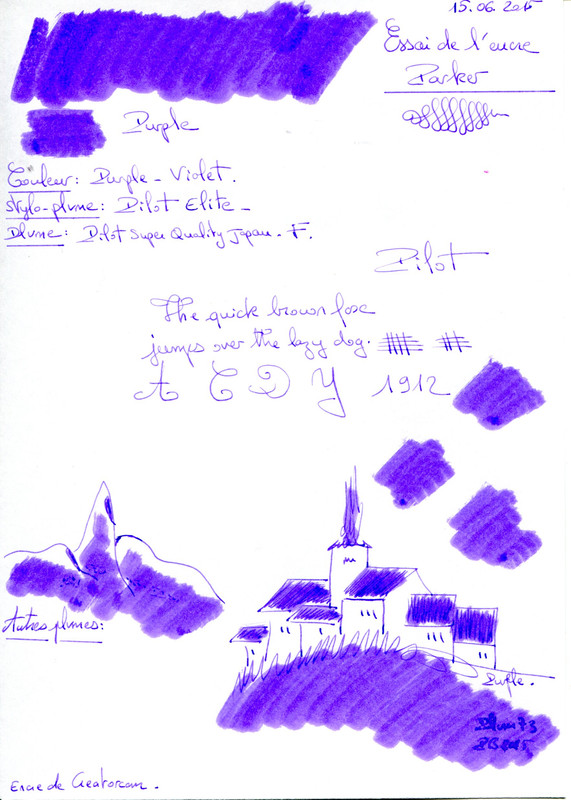 15.06.2015
Essai de l'encre
Parker
Purple
Couleur: Purple - Violet.
Stylo-plume: Pilot Elite -
Plume: Pilot Super Quality Japan - F.
Pilot
The quick brown fox
jumps over the lazy dog.
A C D Y 1912
Autres plumes:
Purple.
Plum73
Encre de